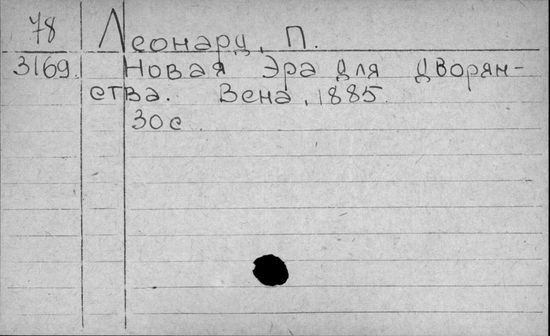 78 Леонард, П.
3169. Новая Эра для дворян-
ства. Вена, 1885.
30 с.